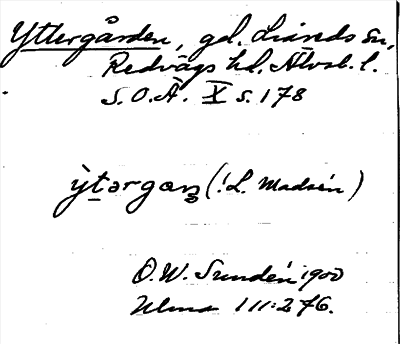 Yttergården, gd. Liareds sn,
Redvägs hd. Älvsb. l.
S.O.Ä. X s. 178
ỳtərgaɳ (! L. Madsén)
O.W. Sundén 1900
Ulma 111:276.